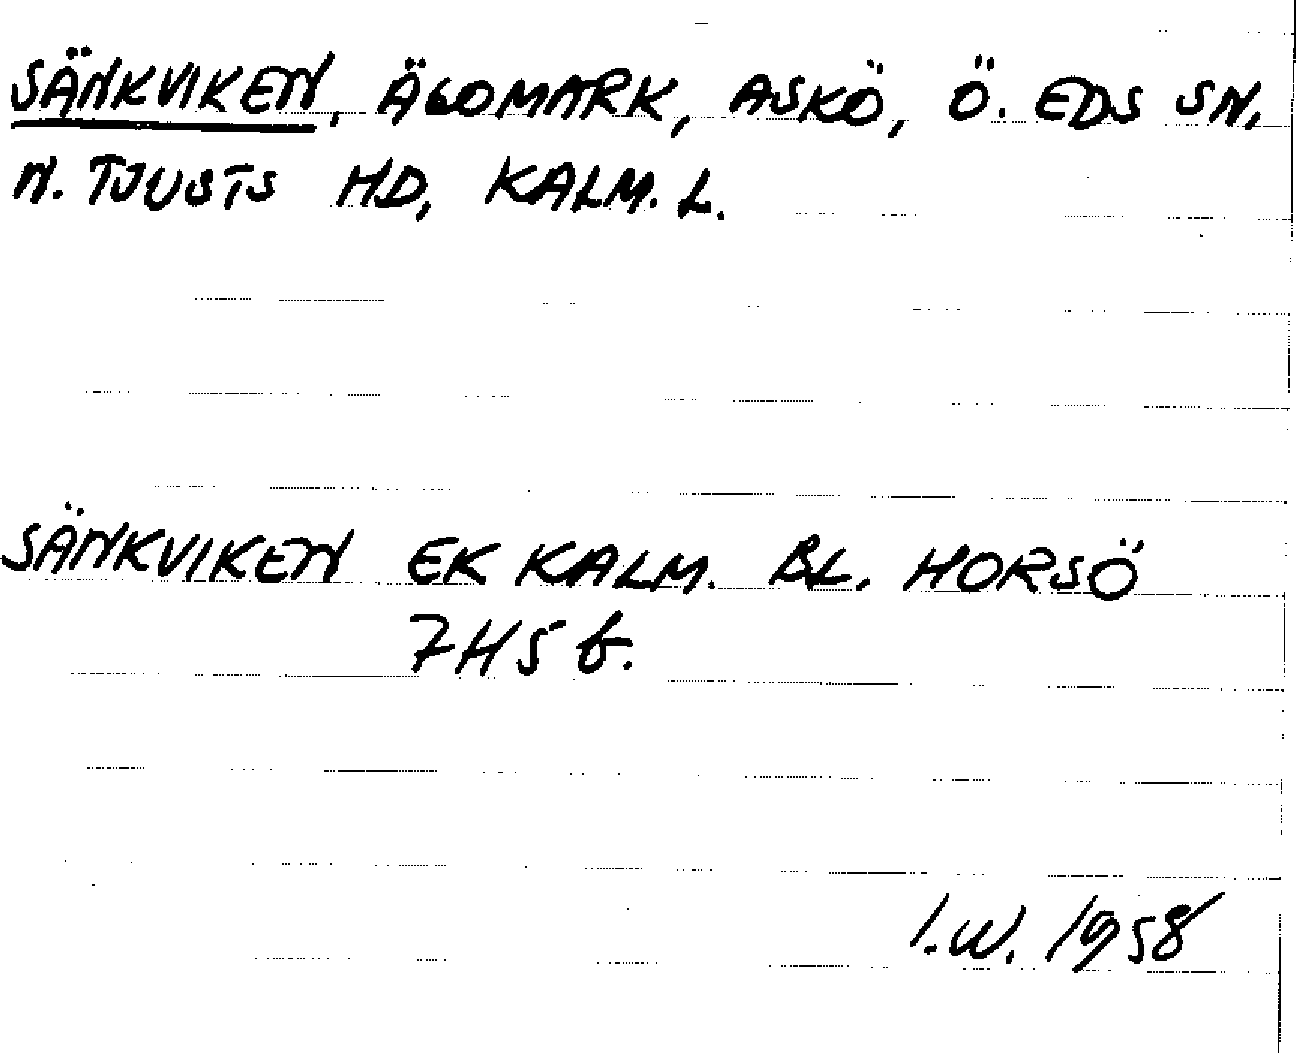 SÄNKVIKEN, ÄGOMARK, ASKÖ, Ö. EDS SN,
N. TJUSTS HD, KALM. L.
SÄNKVIKEN EK KALM. BL. HORSÖ
7H5 b.
I.W. 1958